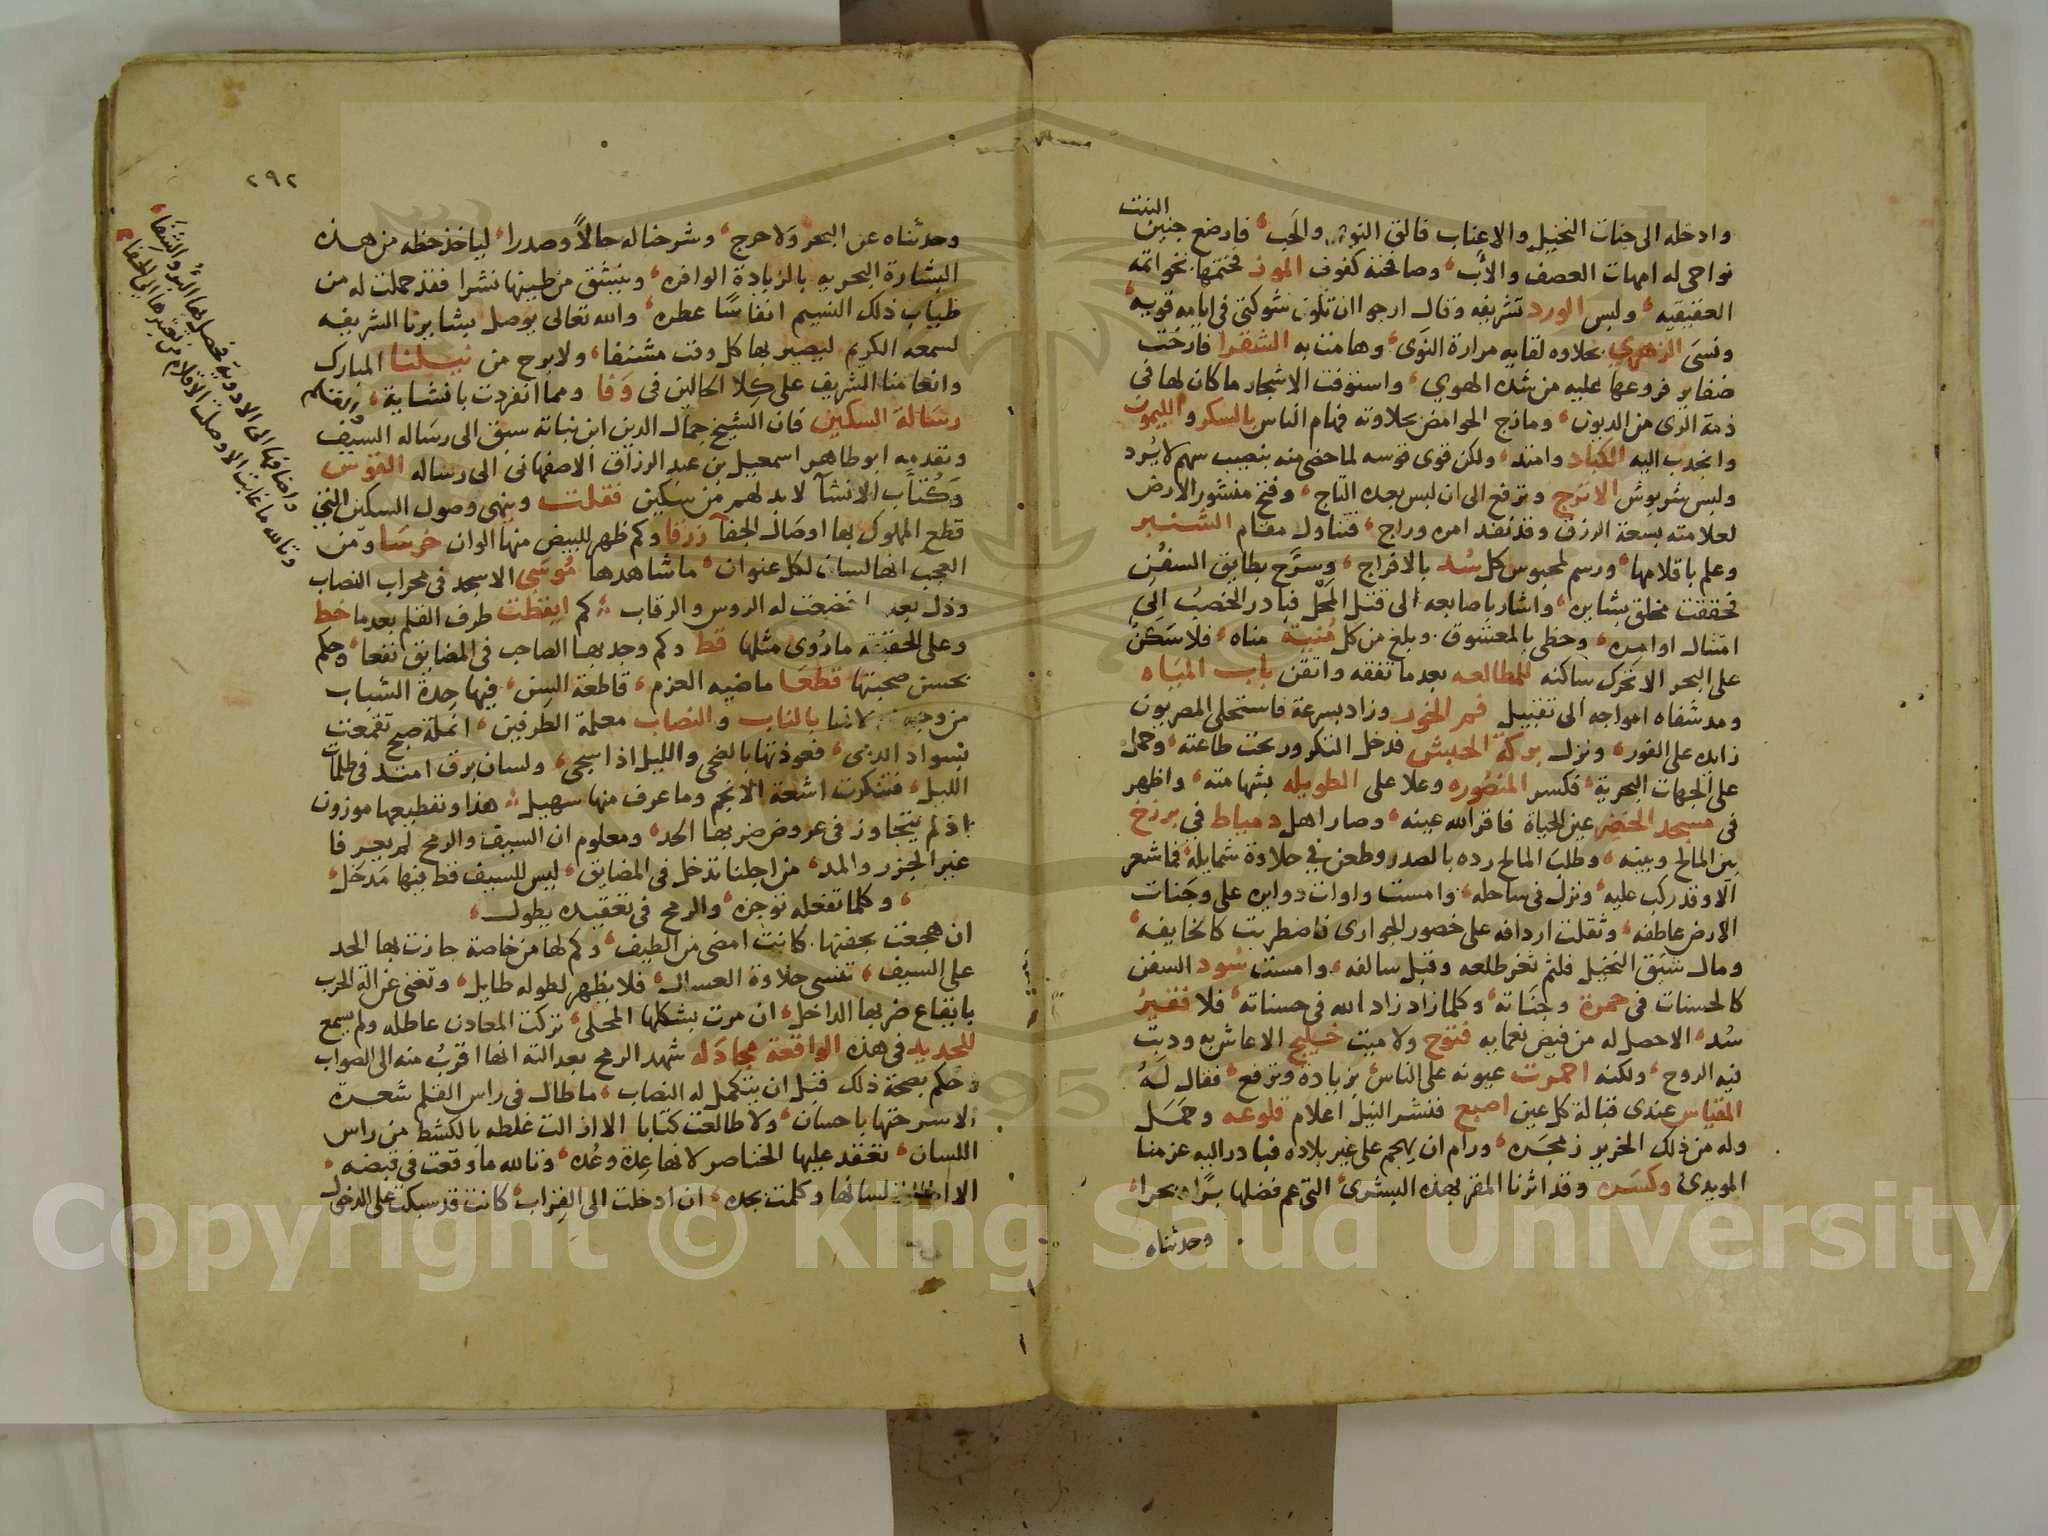 وادخله الى جنات النخيل والاعناب فالق النوى والحب فارضع جنين النبت
نواحى له امهات العصف والأب وصافحته كفوف الموز فختمها بخواتمه
العقيقيه ولبس الورد تشريفه وقال ارجوا ان تكون شوكتى فى ايامه قويه
ونسى الزهرى بحلاوه لقايه مرارة النوى وهامت به الشقرا فأرخت
ضفاير فروعها عليه من شده الهوى واستوفت الاشجار ما كان لها فى
ذمة الرى من الديون ومازج الحوامض بحلاوته فهام الناس بالسكر والليمون
وانجدب اليه الكباد وامتد ولكن قوى قوسه لما حضى منه بنصيب سهم لا يُرد
ولبس شربوش الاترج وترفع الى ان لبس بعده التاج وفتح منشور الارض
لعلامته بسعة الرزق وقد نفد امره وراج فتناول مقام الشنبر
وعلم باقلامها ورسم لمحبوس كل سُد بالافراج وسرَّح بطايق السفُن
فخفقت مخلق بشايره واشار باصابعه الى قتل المَحْل فبادر الخصبُ الى
امتثال اوامره وحظى بالمعشوق وبلغ من كل مُنية مناه فلا سَكَن
على البحر الا تحرك ساكنه للمطالعه بعد ما تفقه واتقن باب المياه
ومد شفاه امواجه الى تقبيل فم الخور وزاد بسرعة فاستحلى المصريون
زايده على الفور ونزل بركة الحبش فدخل التكرور تحت طاعته وحمل
على الجهات البحرية فكسر المنصوره وعلا على الطويله بشهامته واظهر
فى مسجد الخضر عين الحياة فاقر الله عينه وصار اهل دمياط فى برزخ
بين المالح وبينه وطلب المالح رده بالصدر وطعن فى حلاوة شمايله فما شعر
الا وقد ركب عليه ونزل فى ساحله وامست واوات دوايره على وجنات
الارض عاطفه وثقلت اردافه على خصور الجوارى فاضطربت كالخايفه
ومال شيق النخيل فلثم ثغر طلعه وقبل سالفه وامست سُود السفن
كالحسنات فى حمرة وجناته وكلما زاد زاد الله فى حسناته فلا فقيرُ
سُد الا حصل له من فيض نعمايه فتوح ولا ميت خليج الا عاش به ودبت
فيه الروح ولكنه احمرت عيونه على الناس بزيادة وترفع فقال له
المقياس عندى قبالة كل عين اصبع فنشر النيل اعلام قلوعه وحمل
وله من ذلك الخرير زمجره ورام ان يهجم على غير بلاده فبادر اليه عزمنا
المويدى وكسره وقد اثرنا المقر بهذه البشرى التى عم فضلها برًا وبحرا
وحدثناه
٢٩٢
وحدثناه عن البحر ولا حرج وشرحنا له حالاً وصدرا لياخذ حظه من هذه
البشارة البحريه بالزيادة الوافره وينشق من طيبها نشرا فقد حملت له من
طيبات ذلك النسيم انفاسًا عطره والله تعالى يوصل بشايرنا الشريفه
لسمعه الكريم ليصير بها كل وقت مشنفا ولا برح من نيلنا المبارك
وانعامنا الشريف على كلا الحالين فى وَفا ومما انفردت بانشاية
رسالة السكين فان الشيخ جمال الدين ابن نباتة سبق الى رساله السيف والقلم
وتقدمه ابو طاهر اسمعيل بن عبد الرزاق الاصفهانى الى رساله القوس
وكُتّاب الانشآ لابد لهم من سكين فقلت وينهى وصول السكين التى
قطع المملوك بها اوصال الجفا زرقا وكم ظهر للبيض منها الوان خرسا ومن
العجب انها لسان لكل عنوان ما شاهدها مُوسَى الا سجد فى محراب النصاب
وذل بعد ان خضعت له الروس والرقاب كم ايقظت طرف القلم بعد ما خط
وعلى الحقيقه ما رُوى مثلها قط وكم وجد بها الصاحب فى المضايق نفعا وحكم
بحسن صحبتها قطعًا ماضيه العزم قاطعة السن فيها حِدة الشباب
من وجهين لانها بالناب والنصاب معلمة الطرفين انملة صبح تقمعت
بسواد الدجى فعوذتها بالضحى والليل اذا سجى ولسان برق امتد فى ظلمات
الليل فتنكرت اشعة الانجم وما عرف منها سهيل هذا وتقطيعها موزون
اذ لم يتجاوز فى عروض ضربها الحد ومعلوم ان السيف والرمح لم يعرفا
غير الجزر والمد من اجلنا تدخل فى المضايق ليس للسيف قط فيها مَدخَل
وكلما تفعله توجزه والرمح فى تعقيده يطول
ان هجعت بجفنها كانت امضى من الطيف وكم لها من خاصة جازت بها الحد
على السيف تنسى حلاوة العسال فلا يظهر لطوله طايل وتغنى عن الة الحرب
بايقاع ضربها الداخل ان مرت بشكلها المحلى تركت المعادن عاطله ولم يسمع
للحديد فى هذه الواقعة مجادَله شهد الرمح بعدالته انها اقربُ منه الى الصواب
وحكم بصحة ذلك قبل ان يتكمل له النصاب ما طال فى راس القلم شعرة
الا سرحتها باحسان ولا طالعت كتابا الا ازالت غلطه بالكشط من راس
اللسان تعقد عليها الخناصر لانها عِدة وعُده وتالله ما وقعت فى قبضه
الا اطالت لسانها وكلمت بحده ان ادخلت الى القِراب كانت قد سبكت على الدخول